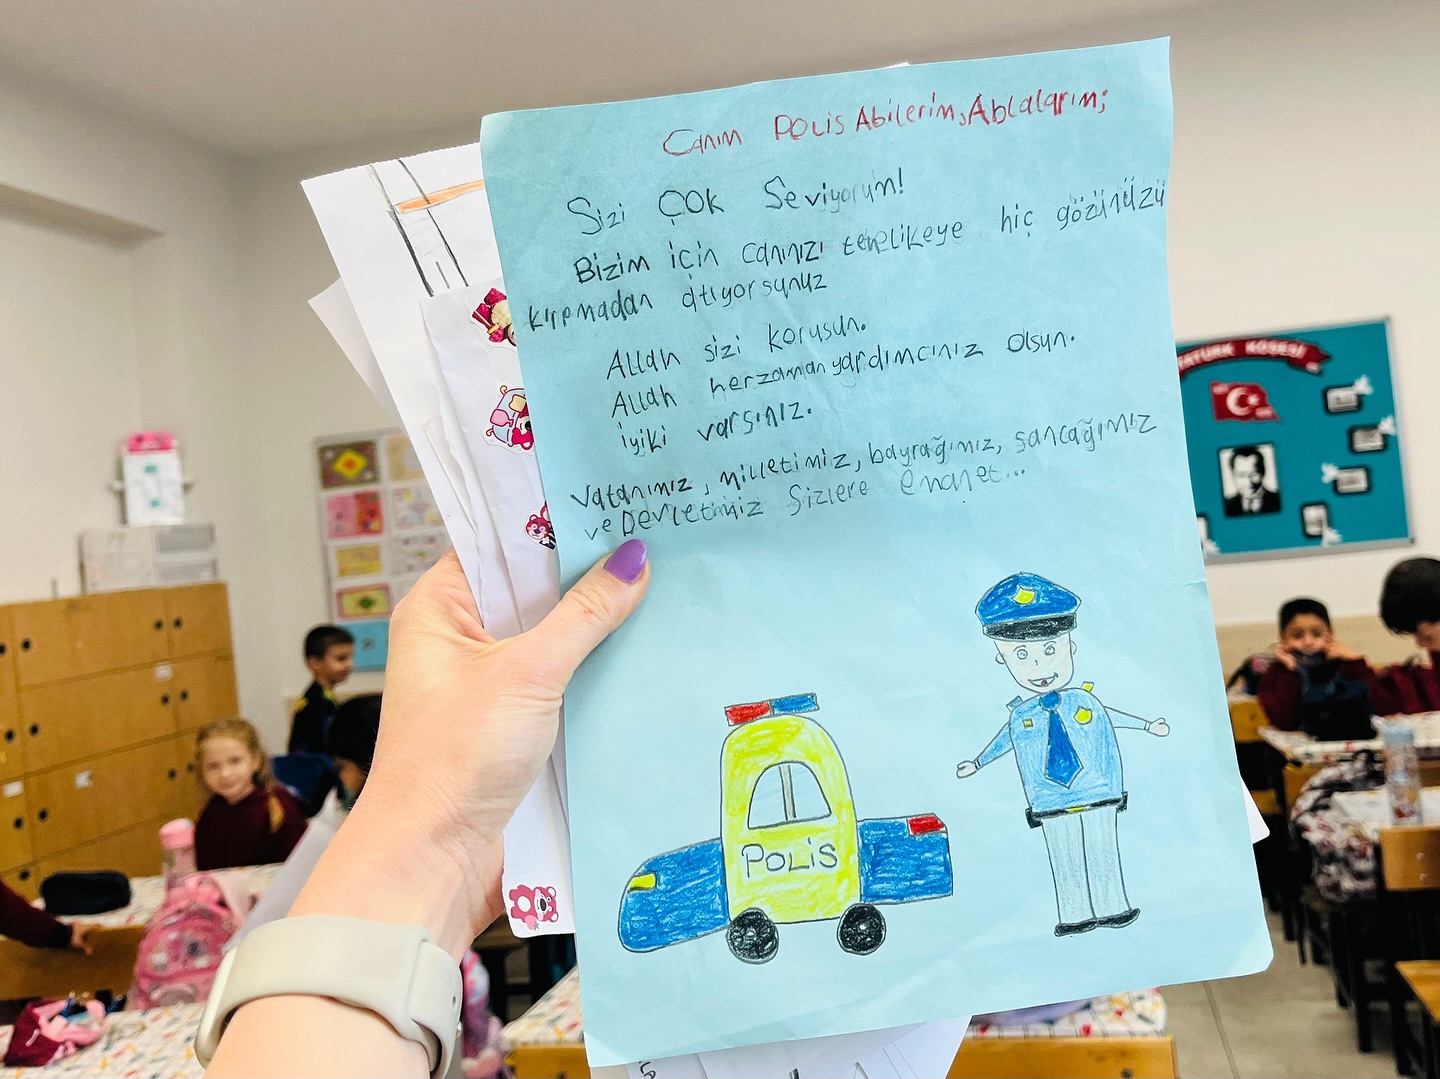 Canım Polis Abilerim, Ablalarım;
Sizi Çok Seviyorum!
Bizim için canınızı tehelikeye hiç gözünüzü
kırpmadan atıyorsunuz
Allah sizi korusun.
Allah herzaman yardımcınız olsun.
iyiki varsınız.
Vatanımız, milletimiz, bayrağımız, sancağımız
ve Devletimiz Sizlere emanet...
POLiS
ATATÜRK KÖŞESİ